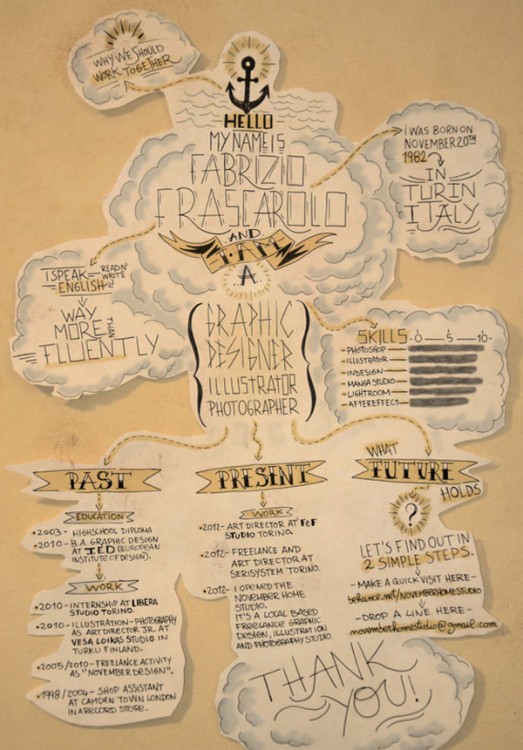 WHY WE SHOULD
WORK TOGETHER
HELLO
MY NAME IS
FABRIZIO
FRASCAROLO
AND
I AM
A
GRAPHIC
DESIGNER
ILLUSTRATOR
PHOTOGRAPHER
I WAS BORN ON
NOVEMBER 20TH
1982
IN
TURIN
ITALY
I SPEAK READ'N'
WRITE
ENGLISH
WAY
MORE THAN
FLUENTLY
SKILLS 0 5 10
PHOTOSHOP
ILLUSTRATOR
INDESIGN
MANGA STUDIO
LIGHTROOM
AFTEREFFECT
PAST
EDUCATION
•2003- HIGHSCHOOL DIPLOMA
•2010- B.A. GRAPHIC DESIGN
AT IED (EUROPEAN
INSTITUTE OF DESIGN).
WORK
•2010- INTERNSHIP AT LIBERA
STUDIO TORINO.
•2010- ILLUSTRATION-PHOTOGRAPHY
AS ART DIRECTOR JR. AT
VESA LOIKAS STUDIO IN
TURKU FINLAND.
•2005/2010- FREELANCE ACTIVITY
AS "NOVEMBER DESIGN".
•1998/2004- SHOP ASSISTANT
AT CAMDEN TOWN LONDON
IN A RECORD STORE.
PRESENT
WORK
•2012- ART DIRECTOR AT FeF
STUDIO TORINO.
•2012- FREELANCE AND
ART DIRECTOR AT
SERISYSTEM TORINO.
•2012- I OPENED THE
NOVEMBER HOME
STUDIO.
IT'S A LOCAL BASED
FREELANCE GRAPHIC
DESIGN, ILLUSTRATION
AND PHOTOGRAPHY STUDIO.
WHAT
FUTURE
HOLDS
?
LET'S FIND OUT IN
2 SIMPLE STEPS.
- MAKE A QUICK VISIT HERE -
behance.net/NOVEMBERHOMESTUDIO
- DROP A LINE HERE -
novemberhomestudio@gmail.com
THANK
YOU!